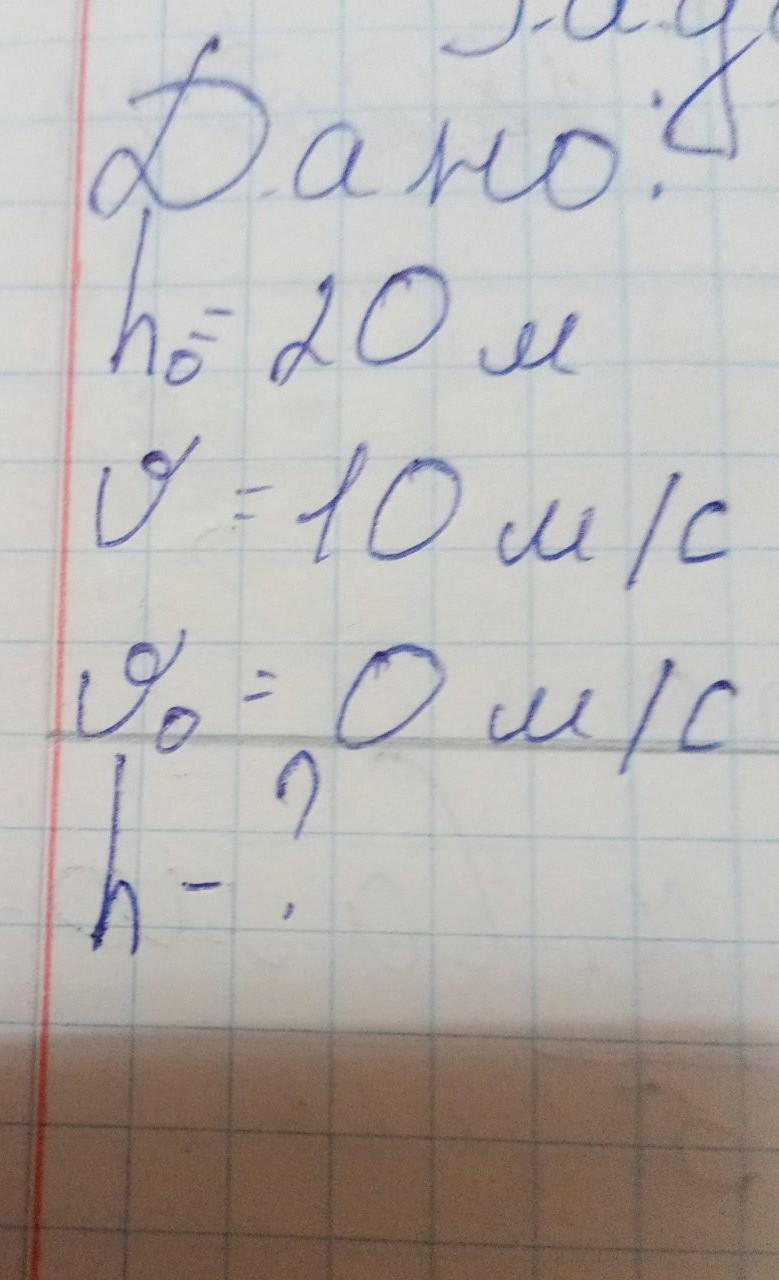 Дано:
h₀ = 20 м
υ = 10 м/с
υ₀ = 0 м/с
h - ?